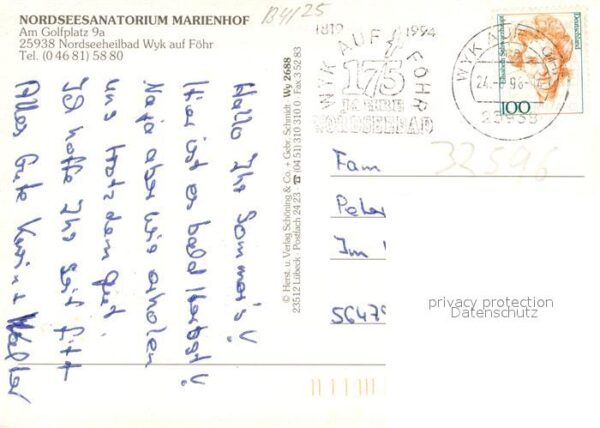 NORDSEESANATORIUM MARIENHOF
Am Golfplatz 9a
25938 Nordseeheilbad Wyk auf Föhr
Tel. (0 46 81) 58 80
B4/25
Hallo Ihr Sommer's!
Hier ist es bald Herbst!
Naja aber wir erholen
uns trotzdem gut.
Ich hoffe Ihr seit fitt
Alles Gute Walter
© Herst. u. Verlag Schöning & Co. + Gebr. Schmidt Wy 2688
23512 Lübeck · Postfach 24 23 ☎ (04 51) 310 310 · Fax 3 52 83
1819 1994
WYK AUF FÖHR
175
NORDSEEBAD
WYK AUF FÖHR
24.
25938
Deutschland
100
32596
Fam
Peter
Im
5647
privacy protection
Datenschutz